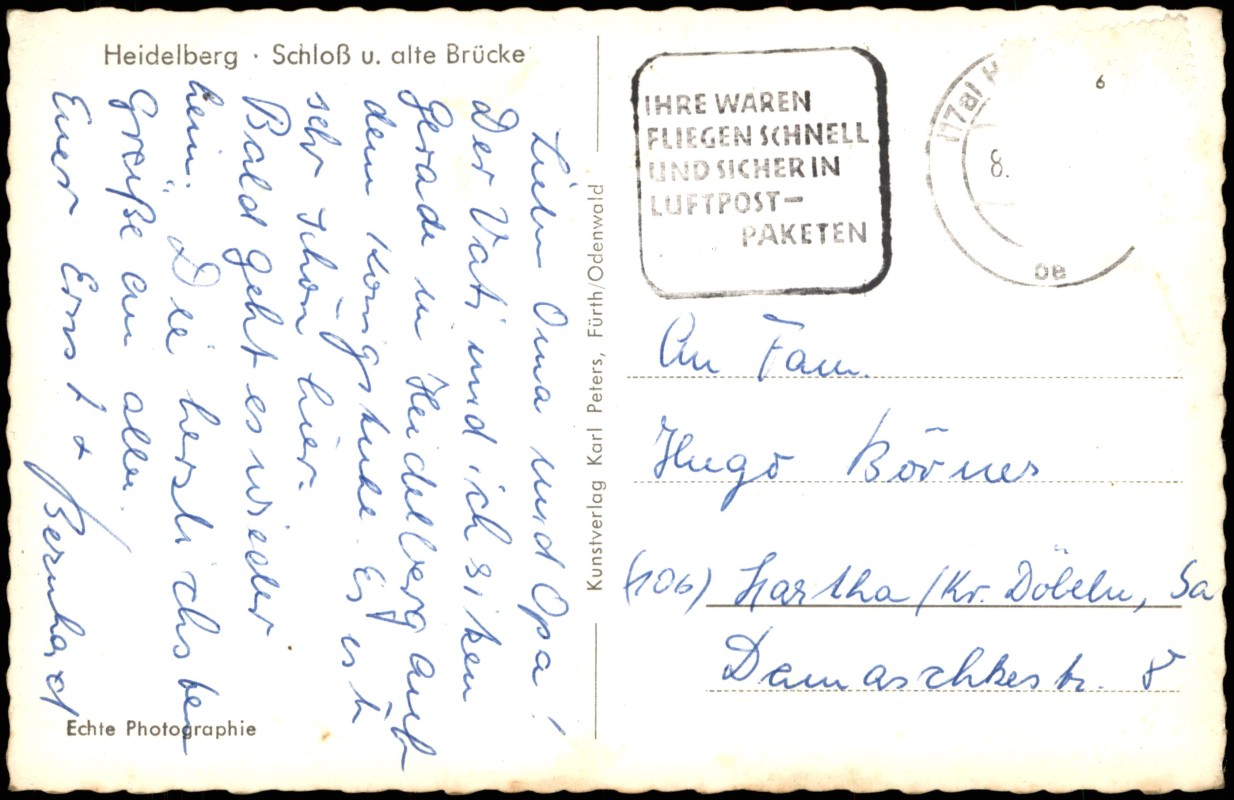 Heidelberg · Schloß u. alte Brücke
Lieben Oma und Opa!
Der Vati und ich sitzen
Gerade in Heidelberg auf
dem Königstuhl. Es ist
sehr schön hier.
Bald geht es wieder
heim. Die herzlichsten
Grüße an alle.
Euer Ernst +
Bernhard
Echte Photographie
Kunstverlag Karl Peters, Fürth/Odenwald
IHRE WAREN
FLIEGEN SCHNELL
UND SICHER IN
LUFTPOST-
PAKETEN
(17a) H
6
8.
An Fam.
Hugo Börner
(10b) Hartha /Kr. Döbeln, Sa
Damaschkestr. 8